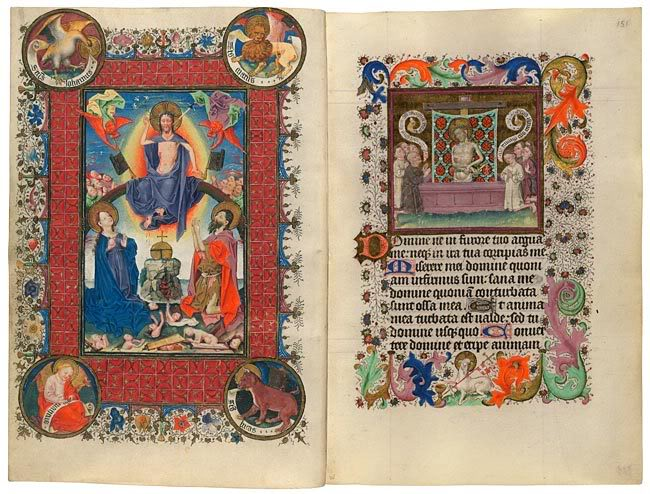 151
Domine ne in furore tuo argua
me: neq in ira tua corripias me
Miserere mei domine quoni
am infirmus sum: sana me
domine quoniā conturbata
sunt ossa mea. Et anima
mea turbata est ualde: sed tu
domine usq quo. Conuer
tere domine et eripe animam